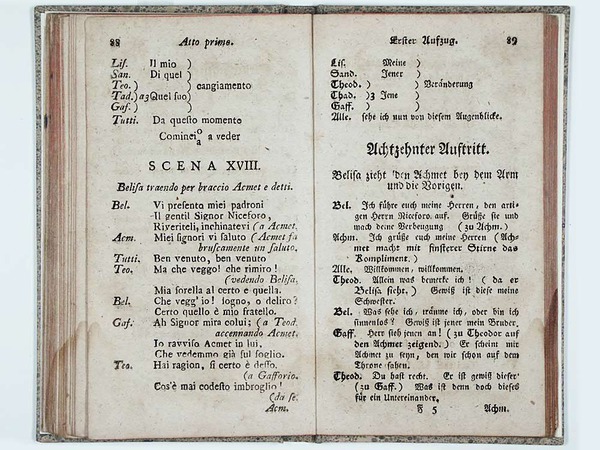 88 Atto primo.
Lis. Il mio )
San. Di quel )
Teo. ) ) cangiamento
Tad.) a3 Quel suo)
Gaf. ) )
Tutti. Da questo momento
Comincio a veder
a
SCENA XVIII.
Belisa traendo per braccio Acmet e detti.
Bel. Vi presento miei padroni
Il gentil Signor Niceforo,
Riveriteli, inchinatevi (a Acmet.
Acm. Miei signori vi saluto (Acmet fa
bruscamente un saluto.
Tutti. Ben venuto, ben venuto
Teo. Ma che veggo! che rimiro!
(vedendo Belisa.
Mia sorella al certo e quella.
Bel. Che vegg' io! sogno, o deliro?
Certo quello è mio fratello.
Gaf. Ah Signor mira colui; (a Teod.
accennando Acmet.
Io ravviso Acmet in lui,
Che vedemmo già sul soglio.
Teo. Hai ragion, si certo è desso.
(a Gafforio.
Cos'è mai codesto imbroglio!
(da se.
Acm.
Erster Aufzug. 89
Lis. Meine )
Sand. Jener )
Theod. ) ) Veränderung
Thad. )3 Jene )
Gaff. ) )
Alle. sehe ich nun von diesem Augenblicke.
Achtzehnter Auftritt.
Belisa zieht den Achmet bey dem Arm
und die Vorigen.
Bel. Ich führe euch meine Herren, den arti-
gen Herrn Niceforo. auf. Grüße sie und
mach deine Verbeugung (zu Achm.)
Achm. Ich grüße euch meine Herren (Ach-
met macht mit finsterer Stirne das
Kompliment.)
Alle. Willkommen, willkommen.
Theod. Allein was bemerke ich! ( da er
Belisa sieht.) Gewiß ist diese meine
Schwester.
Bel. Was sehe ich, träume ich, oder bin ich
sinnenlos? Gewiß ist jener mein Bruder,
Gaff. Herr sieh jenen an! (zu Theodor auf
den Achmet zeigend.) Er scheint mir
Achmet zu seyn, den wir schon auf dem
Throne sahen.
Theod. Du hast recht. Er ist gewiß dieser
(zu Gaff.) Was ist denn doch dieses
für ein Untereinander,
F 5 Achm.